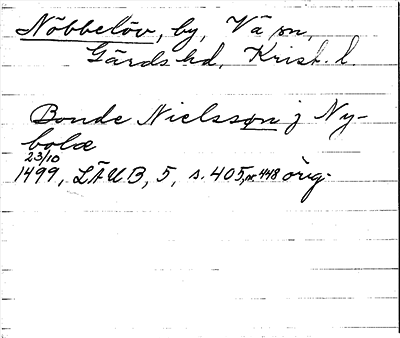 Nöbbelöv, by, Vä sn,
Gärds hd, Krist. l.
Bonde Nielssøn j Ny-
bolæ
23/10
1499, LÄUB, 5, s. 405, nr 448 orig.